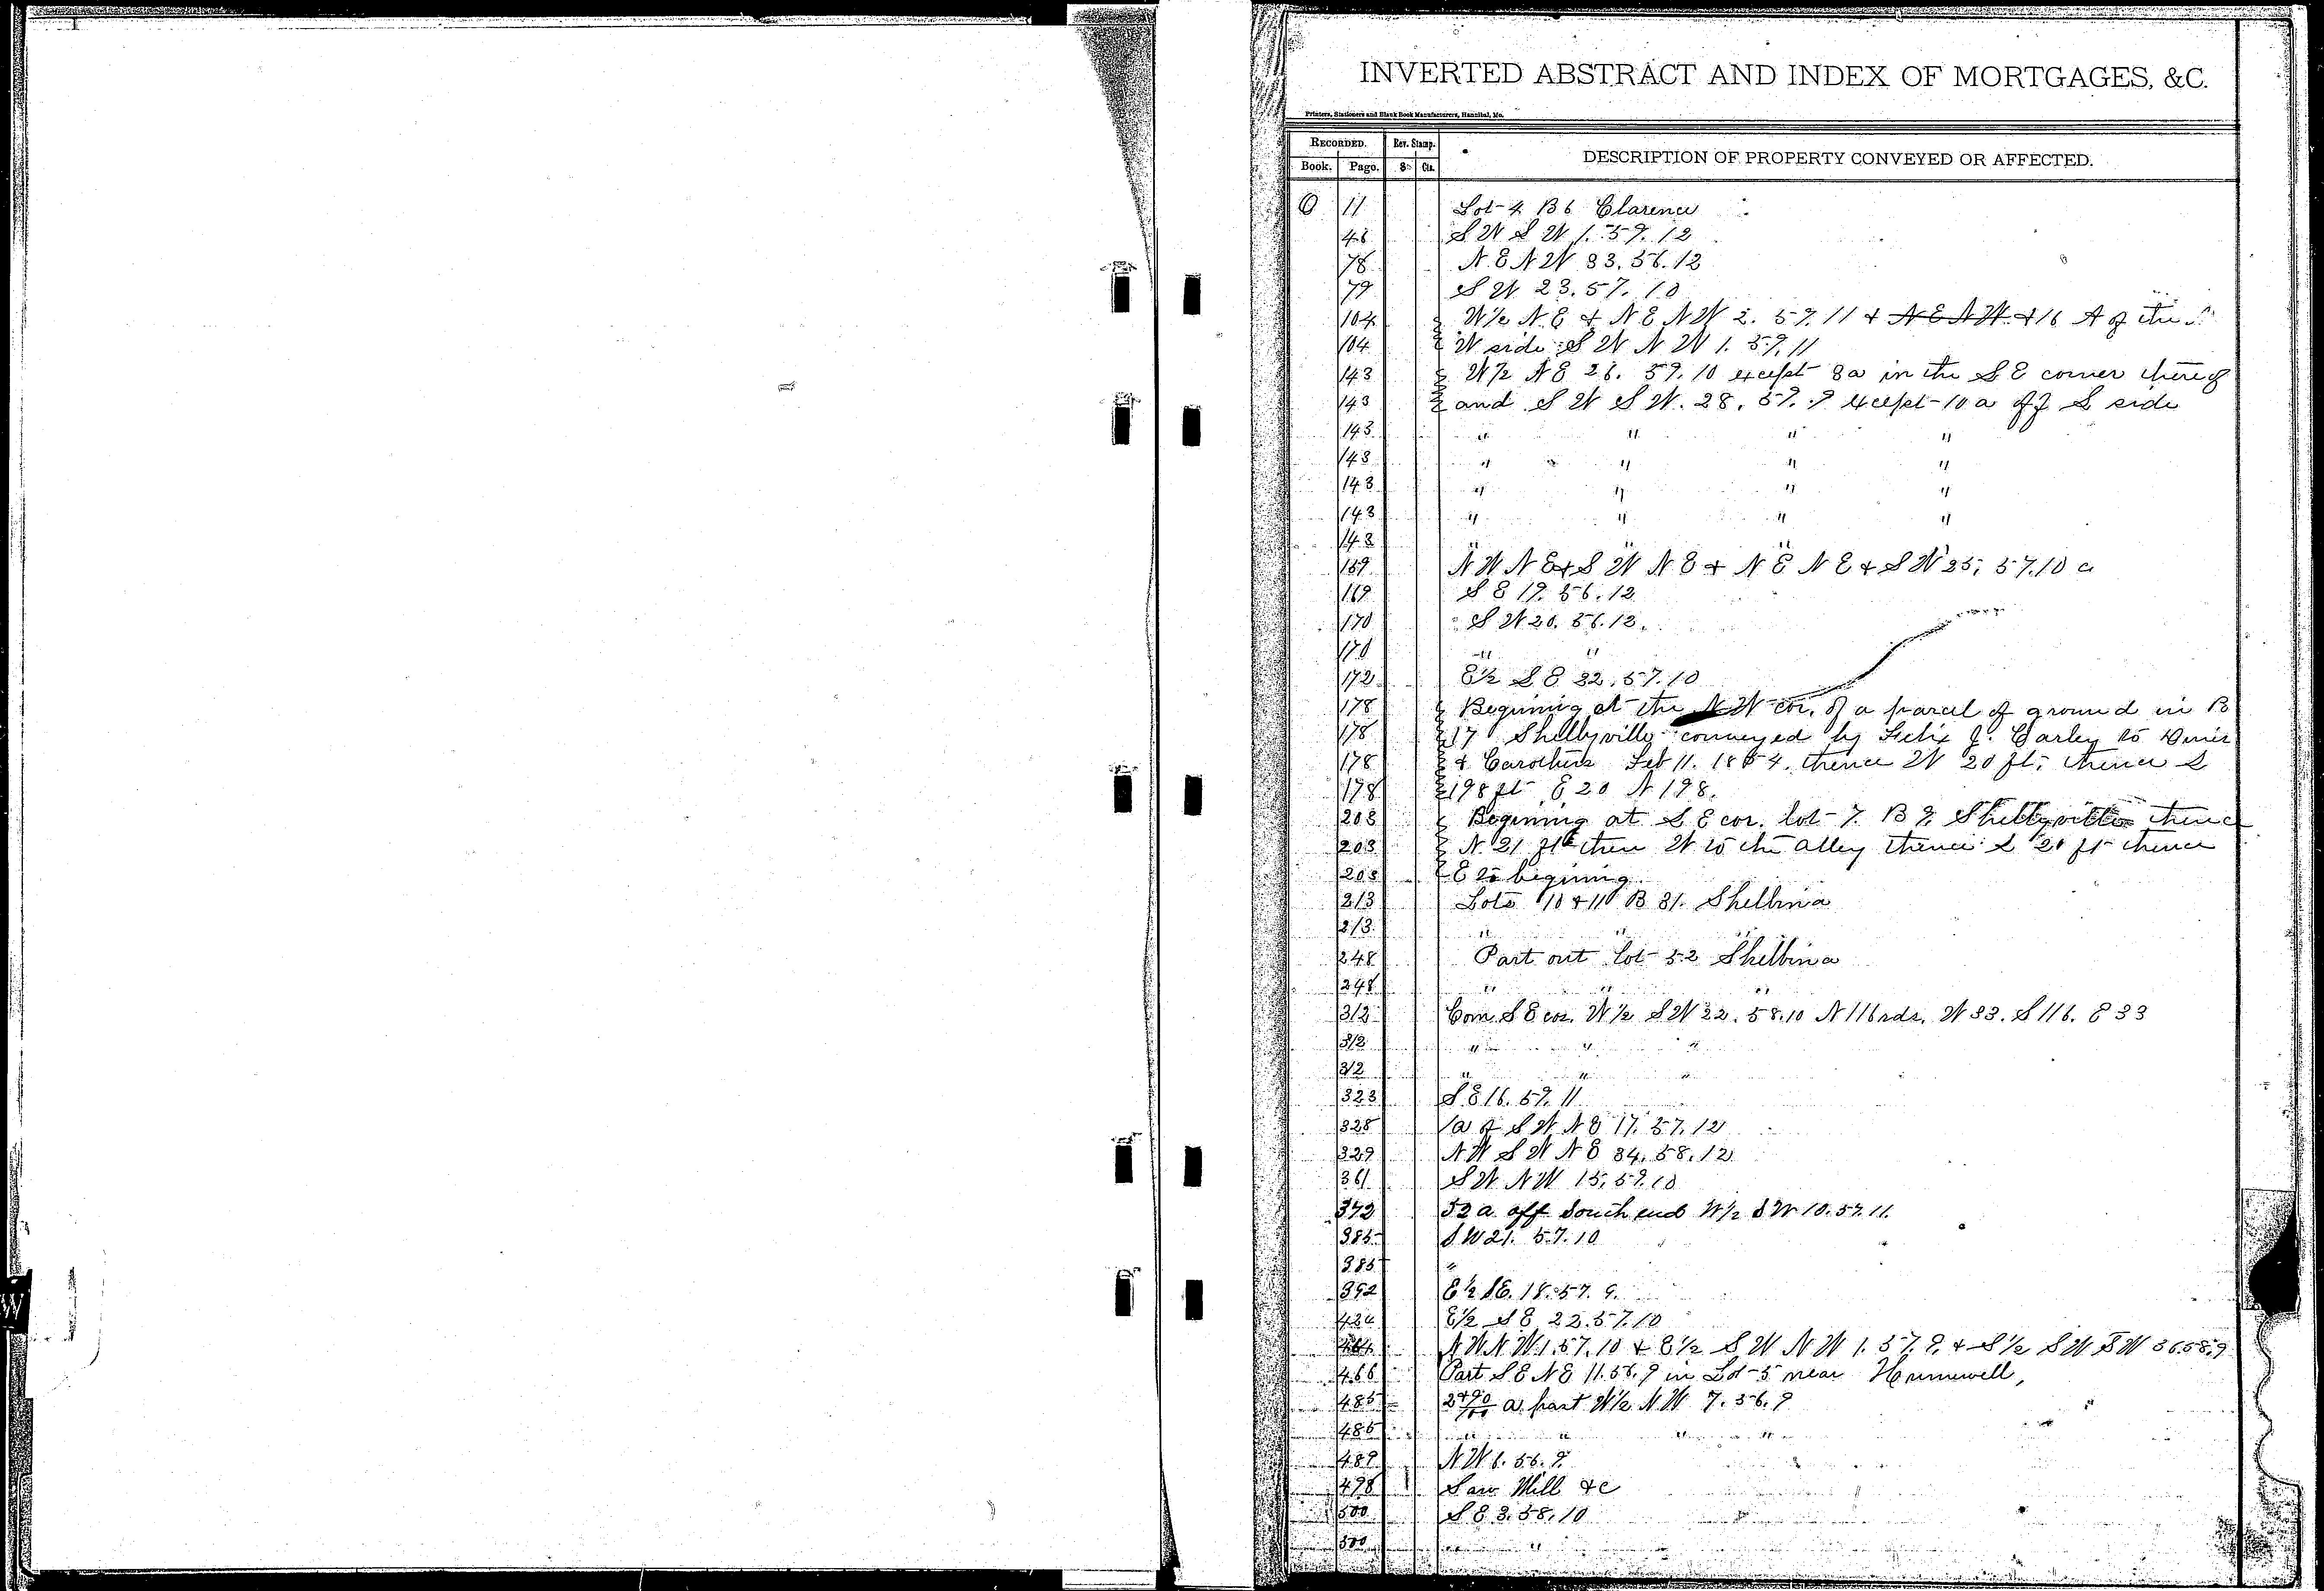 INVERTED ABSTRACT AND INDEX OF MORTGAGES, &C.
Printers, Stationers and Blank Book Manufacturers, Hannibal, Mo.
RECORDED. Rev. Stamp.
Book. Page. $ Cts. DESCRIPTION OF PROPERTY CONVEYED OR AFFECTED.
O 11 Lot 4 B 6 Clarence
46 S W S W 1. 57. 12
78 N. E N W 33. 56. 12
79 S W 23. 57. 10
104 W 1/2 N E & N E N W 2. 57. 11 & N E N W & 16 A of the
104 W side S W N W 1. 57. 11
143 W 1/2 N E 26. 57. 10 except 8 a in the S E corner thereof
143 and S W S W. 28. 57. 9 except 10 a off S side
143 " " " "
143 " " " "
143 " " " "
143 " " " "
143 " " "
169 N W N E & S W N E & N E N E & S W 25. 57. 10 a
169 S E 19. 56. 12
170 S W 20. 56. 12.
170 " "
172 E 1/2 S E 32. 57. 10
178 Beginning at the N W cor. of a parcel of ground in B
178 17 Shelbyville conveyed by Felix J. Carley to
178 & Carothers Feb 11. 1854. thence W 20 ft, thence S
178 198 ft E 20 N 198.
203 Beginning at S E cor. lot 7. B 9. Shelbyville thence
203 N. 21 ft then W to the alley thence S 21 ft thence
203 E to begining
213 Lots 10 & 11 B 31. Shelbina
213 " " "
248 Part out lot 52 Shelbina
248 " " "
312 Com S E cor. W 1/2 S W 22. 58. 10 N 116 rds. W 33. S 116. E 33
312 " " "
312 " " "
323 S. E 16. 57. 11
328 1 a of S W N E 17. 57. 12
329 N W S W N E 34. 58. 12
361 S W N W 15. 57. 10
372 52 a off South end W 1/2 S W 10. 57. 11.
385 S W 21. 57. 10
385 "
392 E 1/2 S E. 18. 57. 9.
424 E 1/2 S E 22. 57. 10
464 N W N W 1. 57. 10 & E 1/2 S W N W 1. 57. 9. & S 1/2 S W S W 36. 58. 9
466 Part S E N E 11. 56. 9 in Lot 5 near Hunnewell,
485 2 90/100 a part W 1/2 N W 7. 56. 9
485 " " " "
489 N W 6. 56. 9.
498 Saw Mill &c
500 S E 3. 58. 10
500 " "